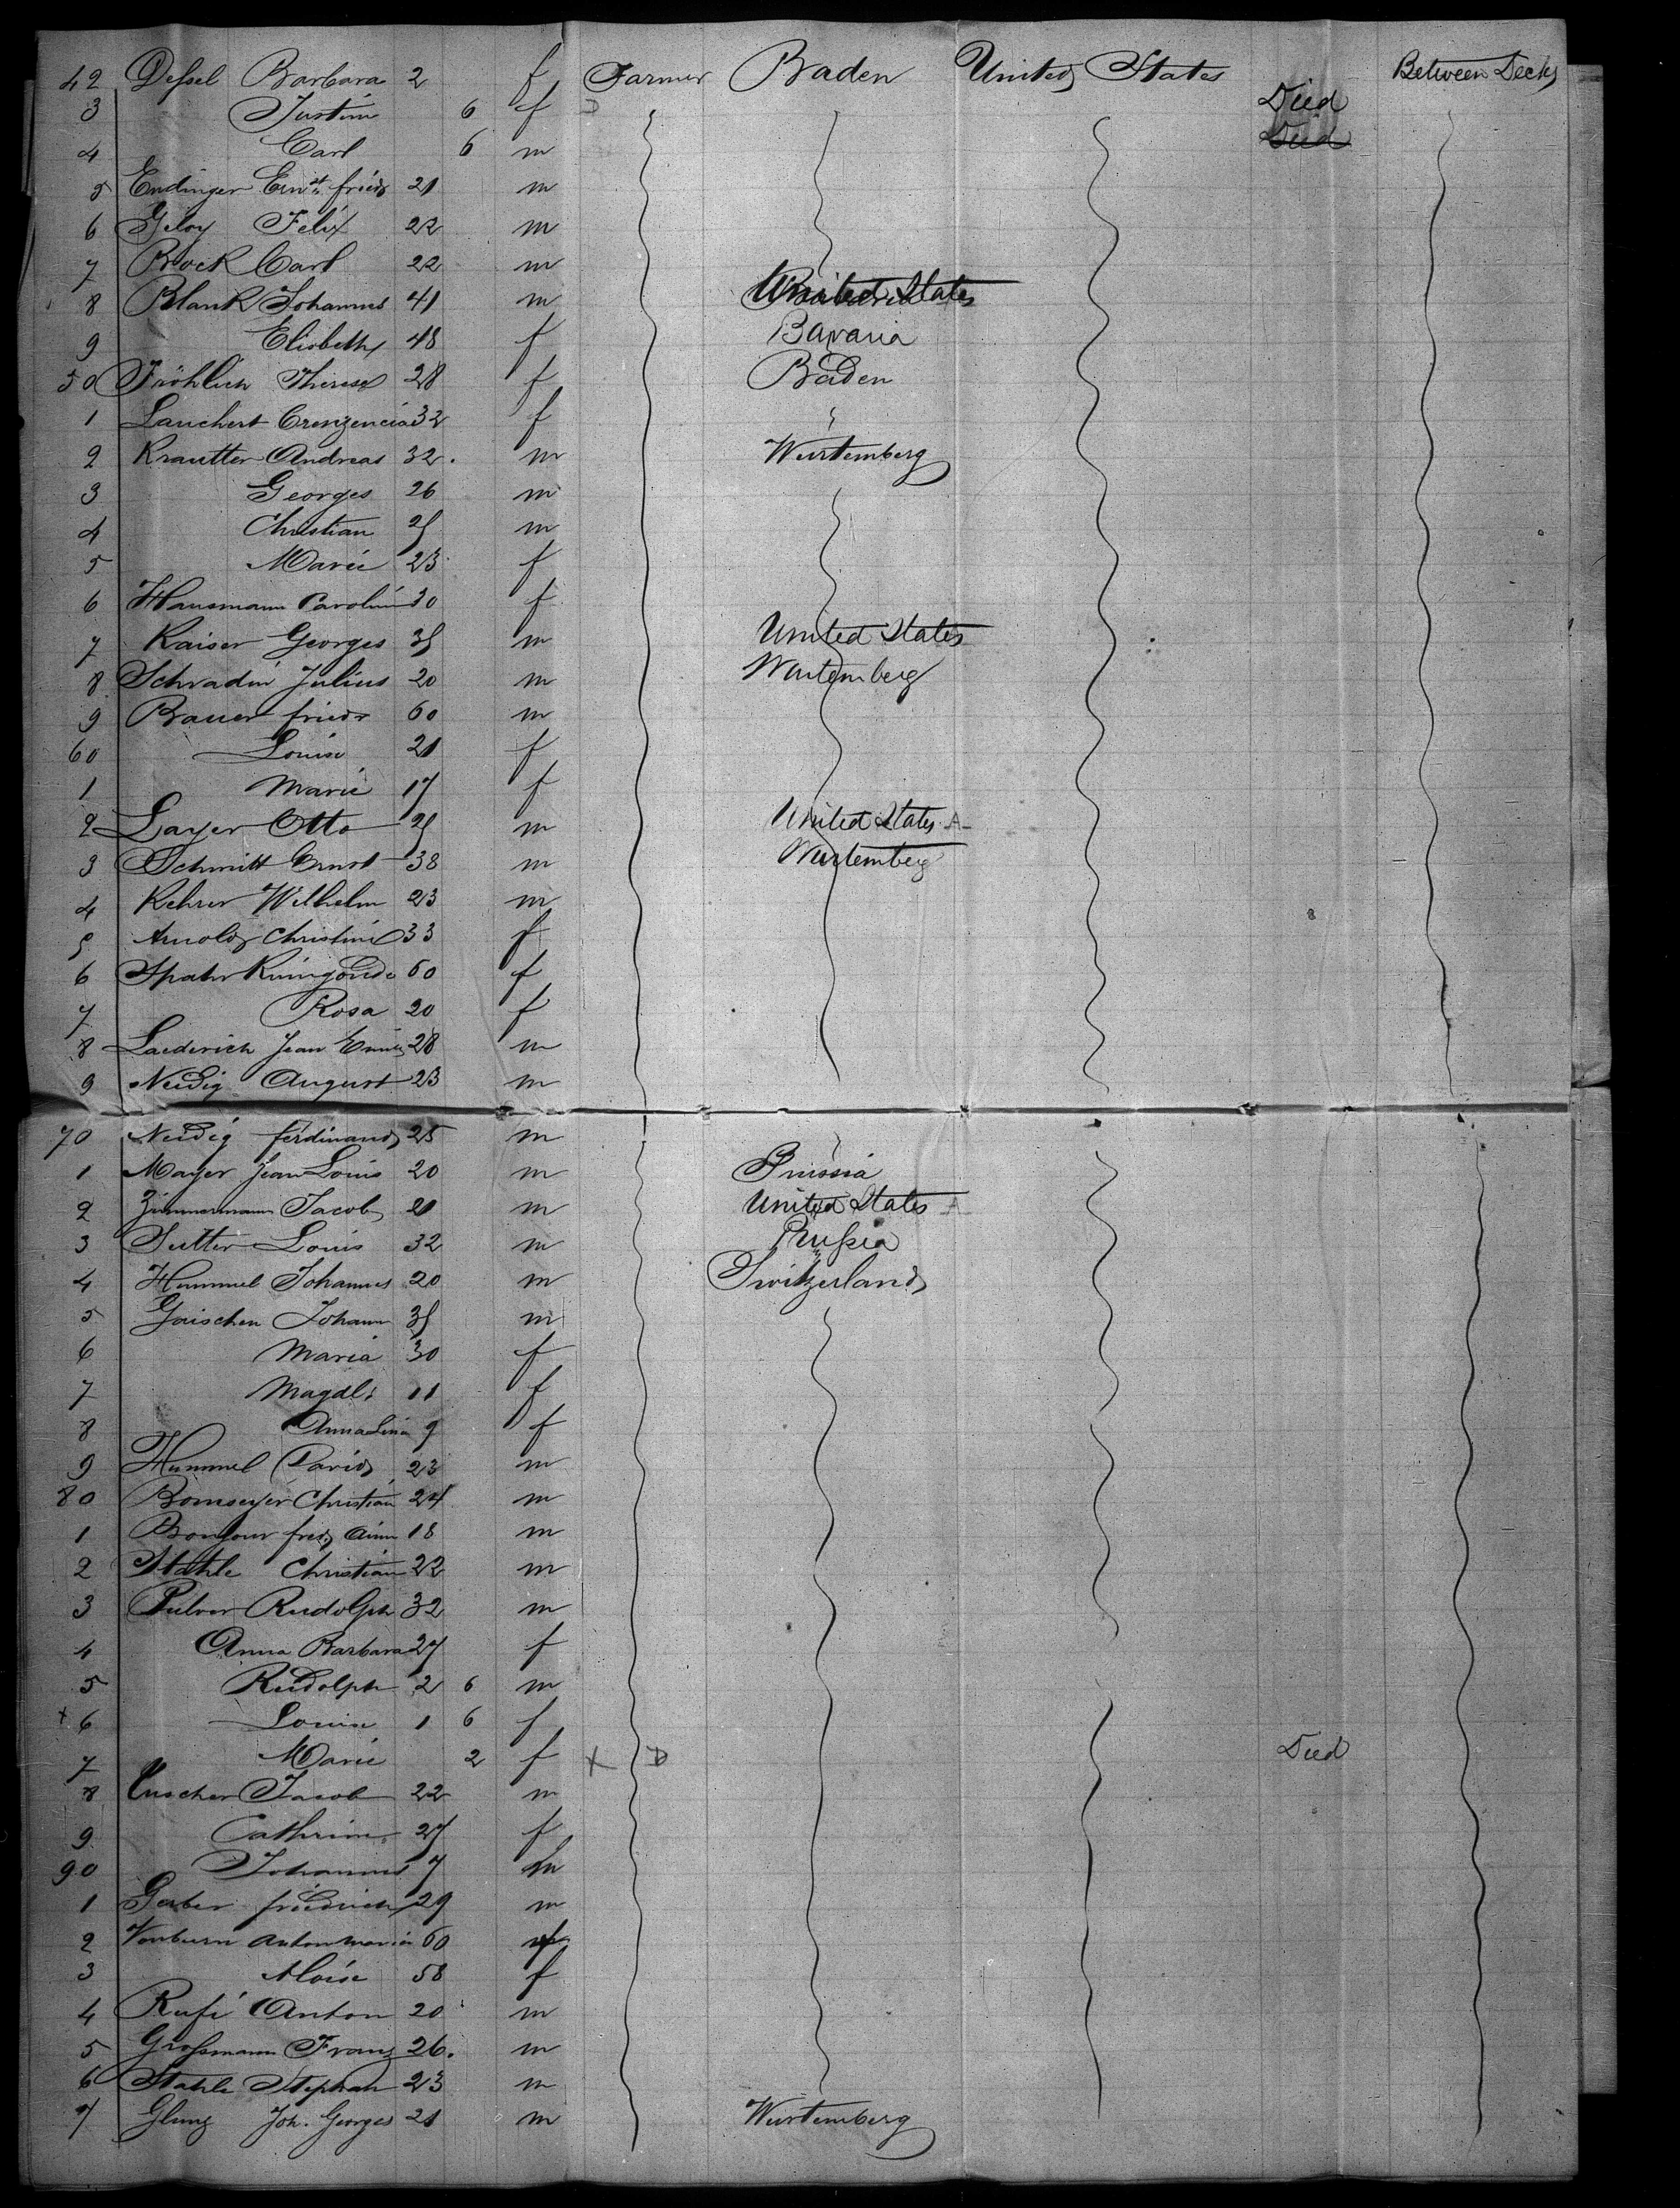 42 Deßel Barbara 2 f Farmer Baden United States Between Decks
3 Justine 6 f D Died
4 Carl 6 m Died
5 Endinger Ernst friedr 21 m
6 Geloy Felix 22 m
7 Bock Carl 22 m
8 Blank Johannes 41 m United States
9 Elisbeth 48 f Bavaria
50 Fröhlich Therese 28 f Baden
1 Lauchert Crenzencia 32 f
2 Krautter Andreas 32. m Wurtemberg
3 Georges 26 m
4 Christian 25 m
5 Marie 23 f
6 Hausmann Caroline 30 f
7 Kaiser Georges 35 m United States
8 Schradin Julius 20 m Wurtemberg
9 Bauer friedr 60 m
60 Louise 21 f
1 Marie 17 f
2 Layer Otto 25 m United States A
3 Schmitt Ernst 38 m Wurtemberg
4 Kehrer Wilhelm 23 m
5 Arnold Christine 33 f
6 Spahr Kunigonde 60 f
7 Rosa 20 f
8 Laederich Jean Emile 28 m
9 Neidig August 23 m
70 Neidig ferdinand 25 m
1 Mayer Jean Louis 20 m Prussia
2 Zimmermann Jacob 21 m United States A
3 Sutter Louis 32 m Prußia
4 Hummel Johannes 20 m Switzerland
5 Gaischen Johann 35 m
6 Maria 30 f
7 Magdl. 11 f
8 Anna Lina 9 f
9 Hummel David 23 m
80 Christian 24 m
1 Bonjour fred. 18 m
2 Stahle Christian 22 m
3 Pulver Rudolph 32 m
4 Anna Barbara 27 f
5 Rudolph 2 6 m
x 6 Louise 1 6 f
7 Marie 2 f X D Died
8 Jacob 22 m
9 Cathrine 27 f
90 Johannes 7 m
1 Gerber friedrich 29 m
2 Vonburn Anton Maria 60
3 Aloise 58 f
4 Rufi Anton 20 m
5 Großmann Franz 26. m
6 Stahle Stephan 23 m
7 Glunz Joh. Georges 21 m Wurtemberg